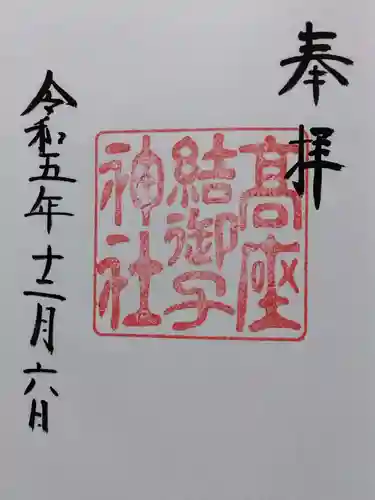 奉拝
髙座
結御子
神社
令和五年十二月六日